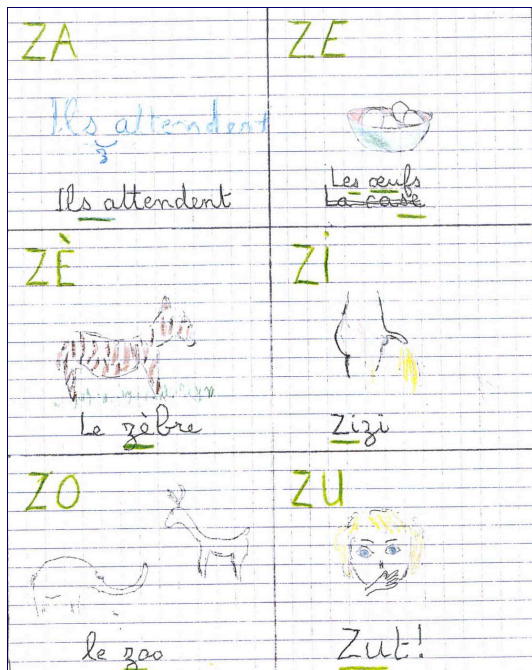 ZA
Ils attendent
z
Ils attendent
ZE
Les œufs
La case
ZÈ
Le zèbre
Zi
Zizi
ZO
le zoo
ZU
Zut!